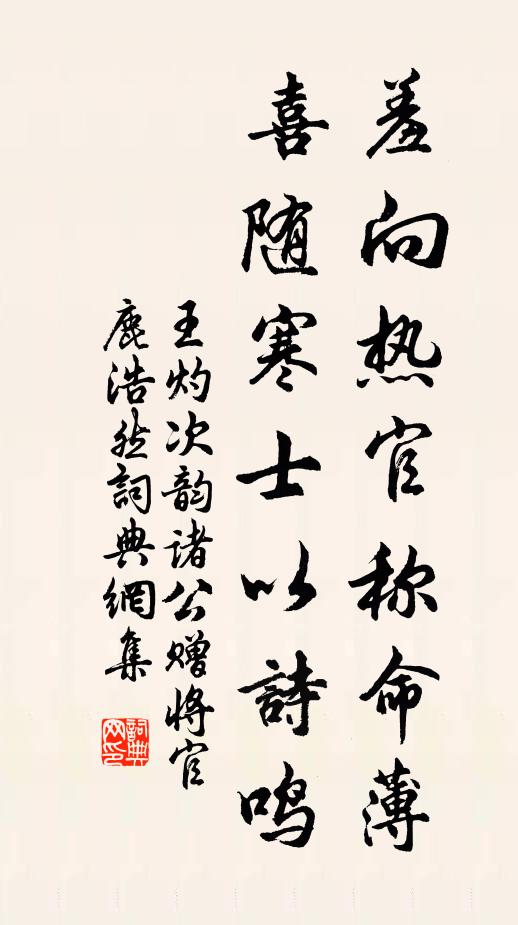 羞向热官称命薄
喜随寒士以詩鸣
王灼次韵诸公赠将官
鹿浩然詞典網集
詞典网印